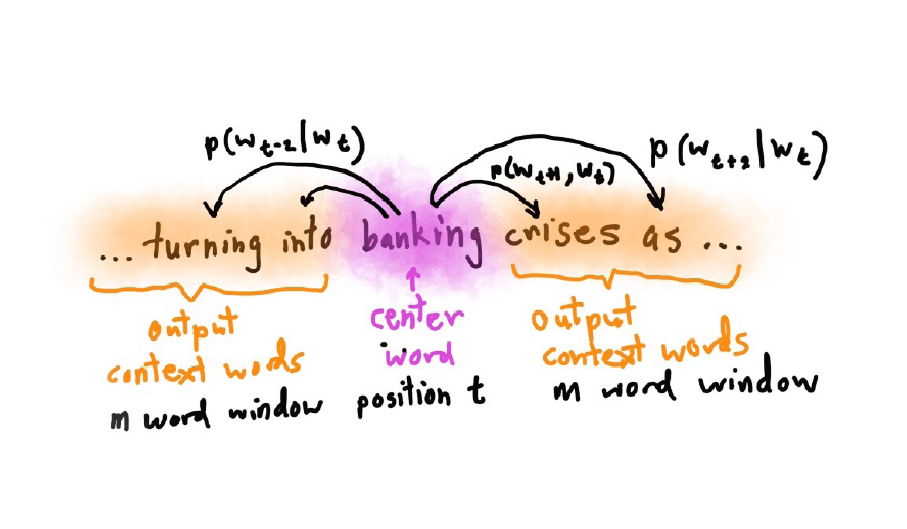 p(wt-2|wt)
p(wt+1, wt)
p(wt+2|wt)
... turning into banking crises as ...
output
context words
m word window
center
word
position t
output
context words
m word window